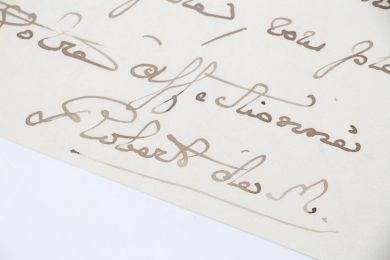 vous
Votre affectionné
Robert des M.